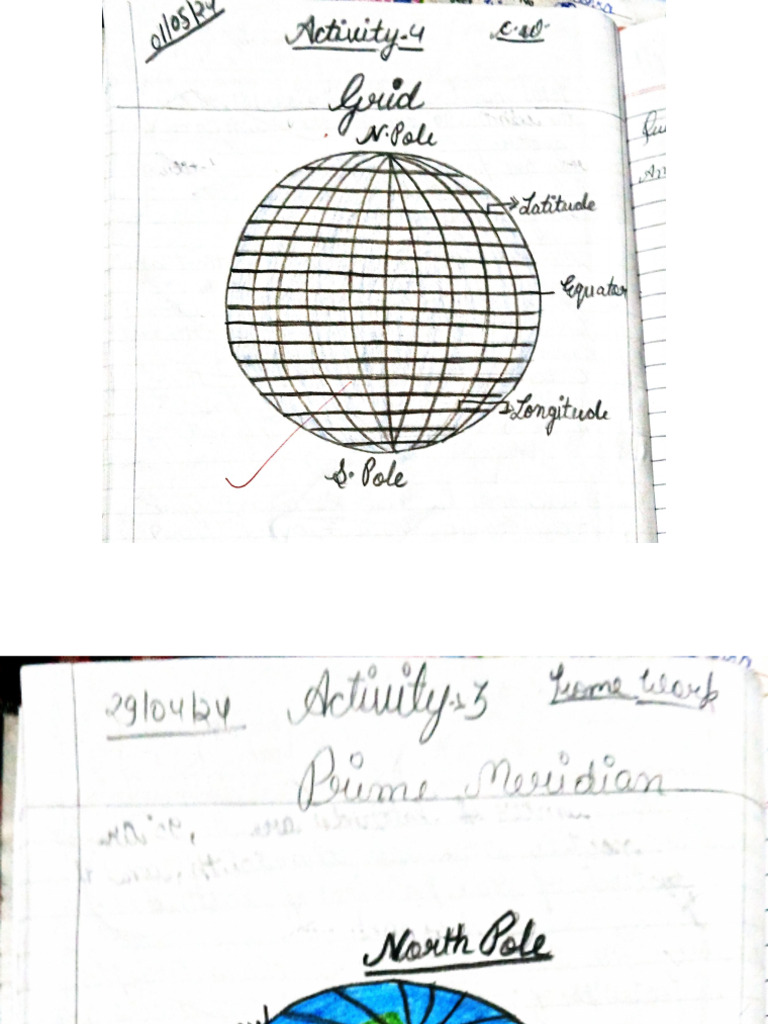 01/05/24 Activity-4 C.W.
Grid
N.Pole
Latitude
Equator
Longitude
S.Pole
29/04/24 Activity-3 Home Work
Prime Meridian
North Pole